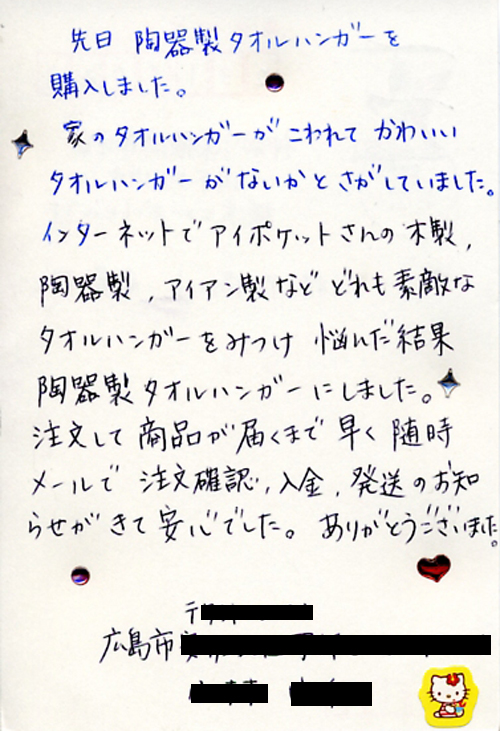 先日 陶器製タオルハンガーを
購入しました。
家のタオルハンガーが こわれて かわいい
タオルハンガーがないかと さがしていました。
インターネットでアイポケットさんの木製,
陶器製, アイアン製など どれも素敵な
タオルハンガーをみつけ 悩んだ結果
陶器製タオルハンガーにしました。
注文して 商品が届くまで 早く 随時
メールで 注文確認, 入金, 発送のお知
らせがきて安心でした。ありがとうございました。
〒
広島市